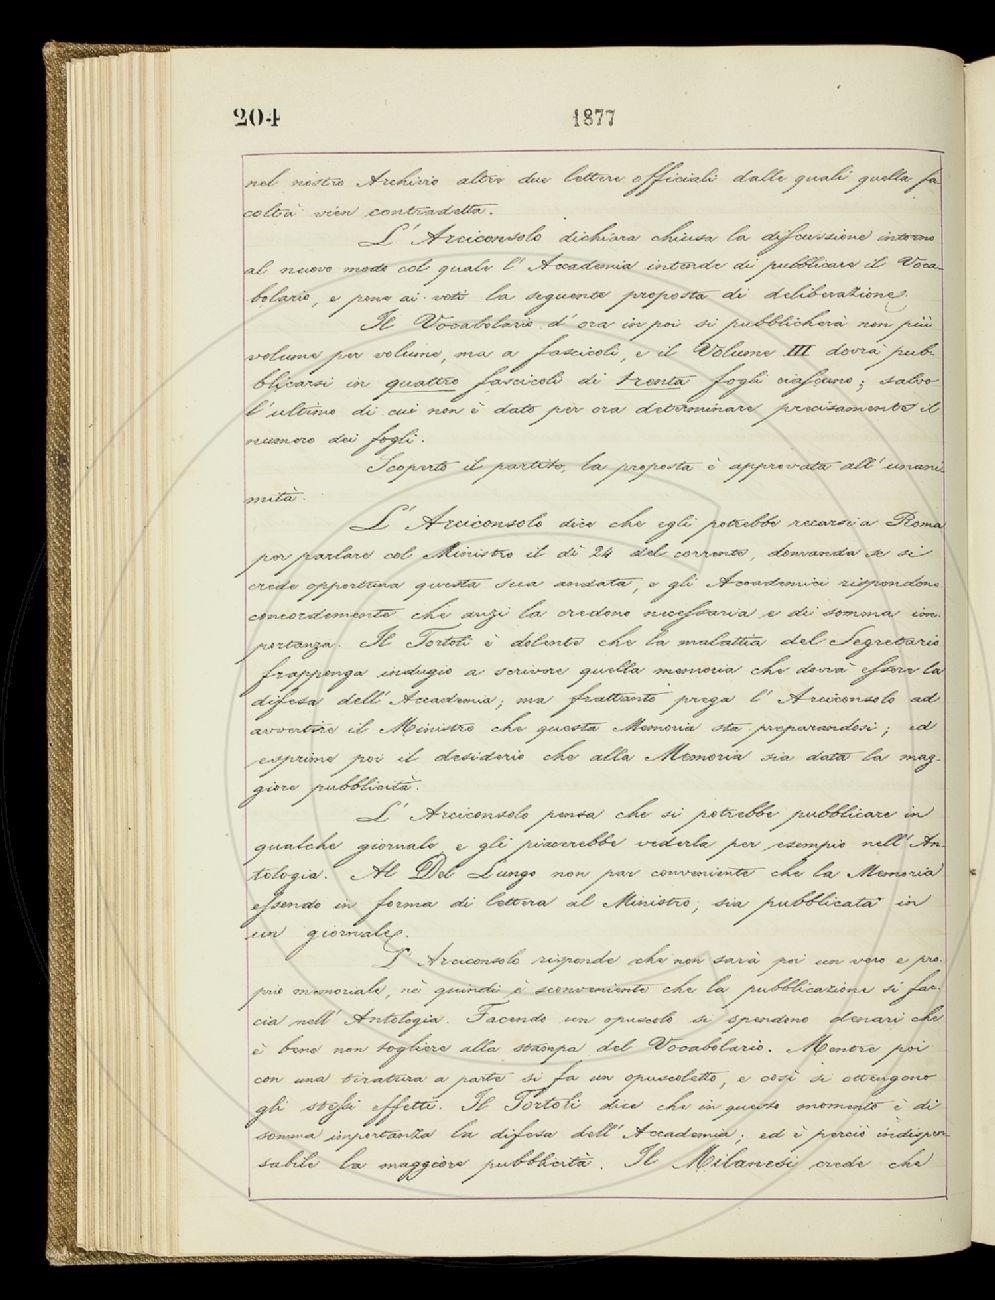 204
1877
nel nostro Archivio altre due lettere officiali dalle quali quella fa
coltà vien contradetta.
L' Arciconsolo dichiara chiusa la discussione intorno
al nuovo modo col quale l' Accademia intende di pubblicare il Voca-
bolario, e pone ai voti la seguente proposta di deliberazione.
Il Vocabolario d' ora in poi si pubblicherà non più
volume per volume, ma a fascicoli, e il Volume III dovrà pub-
blicarsi in quattro fascicoli di trenta fogli ciascuno; salvo
l' ultimo di cui non è dato per ora determinare precisamente il
numero dei fogli.
Scoperto il partito, la proposta è approvata all' unani-
mità.
L' Arciconsolo dice che egli potrebbe recarsi a Roma
per parlare col Ministro il dì 24 del corrente, domanda se si
crede opportuna questa sua andata, e gli Accademici rispondono
concordemente che anzi la credono necessaria e di somma im-
portanza. Il Tortoli è dolente che la malattia del Segretario
frapponga indugio a scrivere quella memoria che dovrà essere la
difesa dell' Accademia; ma frattanto prega l' Arciconsolo ad
avvertire il Ministro che questa Memoria sta preparandosi; ed
esprime poi il desiderio che alla Memoria sia data la mag-
giore pubblicità.
L' Arciconsolo pensa che si potrebbe pubblicare in
qualche giornale e gli piacerebbe vederla per esempio nell' An-
tologia. Al Del Lungo non par conveniente che la Memoria
essendo in forma di lettera al Ministro, sia pubblicata in
un giornale.
L' Arciconsolo risponde che non sarà poi un vero e pro-
prio memoriale, nè quindi è sconveniente che la pubblicazione si fac-
cia nell' Antologia. Facendo un opuscolo si spendono denari che
è bene non togliere alla stampa del Vocabolario. Mentre poi
con una tiratura a parte si fa un opuscoletto, e così si ottengono
gli stessi effetti. Il Tortoli dice che in questo momento è di
somma importanza la difesa dell' Accademia; ed è perciò indispen-
sabile la maggiore pubblicità. Il Milanesi crede che